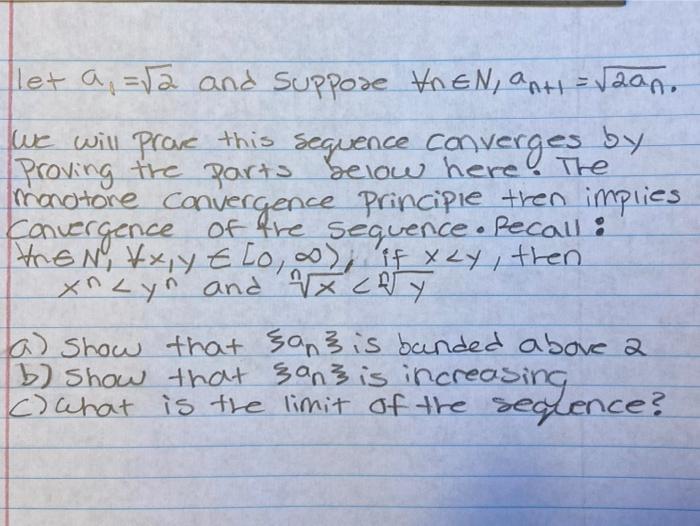 let a₁ = √2 and suppose ∀n ∈ N, aₙ₊₁ = √2aₙ.
We will prove this sequence converges by
proving the parts below here. The
monotone convergence principle then implies
convergence of the sequence. Recall:
∀n ∈ N, ∀x,y ∈ [0, ∞), if x < y, then
xⁿ < yⁿ and ⁿ√x < ⁿ√y
a) Show that {aₙ} is bounded above 2
b) Show that {aₙ} is increasing
c) what is the limit of the sequence?